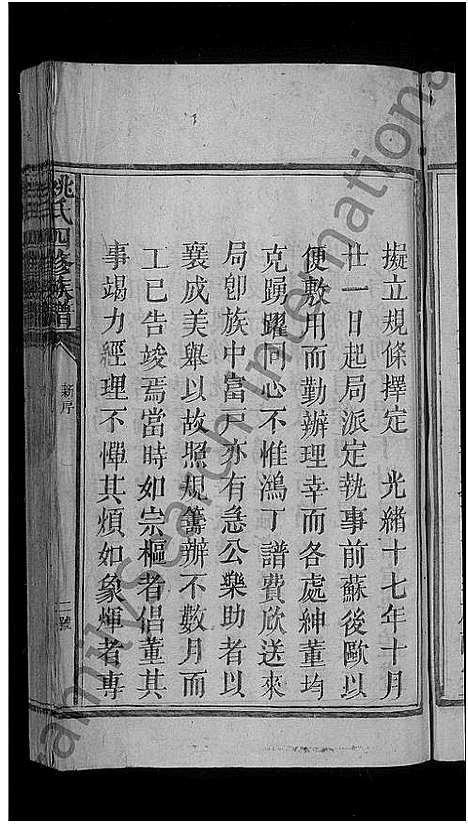 擬立規條擇定 光緒十七年十月
廿一日起局派定執事前蘇後歐以
便敷用而勤辦理幸而各處紳董均
克踴躍同心不惟鴻丁譜費欣送來
局卽族中富戶亦有急公樂助者以
襄成美舉以故照規籌辦不數月而
工已告竣焉當時如宗樞者倡董其
事竭力經理不憚其煩如象煇者專
姚氏四修族譜
新序
二號
FamilySearch International